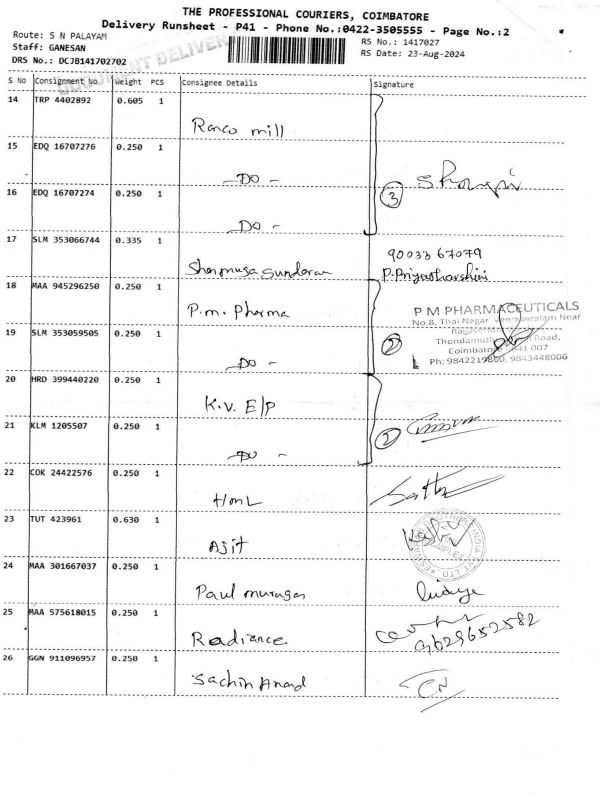 THE PROFESSIONAL COURIERS, COIMBATORE
Delivery Runsheet - P41 - Phone No.:0422-3505555 - Page No.:2
Route: S N PALAYAM
RS No.: 1417027
Staff: GANESAN
RS Date: 23-Aug-2024
DRS No.: DCJB141702702
S No Consignment No. Weight PCS Consignee Details Signature
14 TRP 4402892 0.605 1
Ranco mill
15 EDQ 16707276 0.250 1
- DO -
3
16 EDQ 16707274 0.250 1
- DO -
17 SLM 353066744 0.335 1
90033 67079
Shanmuga Sundaran P.Priyadharshini
18 MAA 945296250 0.250 1
P.m. Pharma
P M PHARMACEUTICALS
No.8, Thai Nagar Veerakeralam Near
19 SLM 353059505 0.250 1
2
Road,
641 007
Ph: 9842219860, 9843448006
- DO -
20 HRD 399440220 0.250 1
K.V. E/P
21 KLM 1205507 0.250 1
2
- DO -
22 COK 24422576 0.250 1
HmL
23 TUT 423961 0.630 1
Ajit
24 MAA 301667037 0.250 1
Paul murugan
25 MAA 575618015 0.250 1
Radiance
9629652582
26 GGN 911096957 0.250 1
Sachin Anand